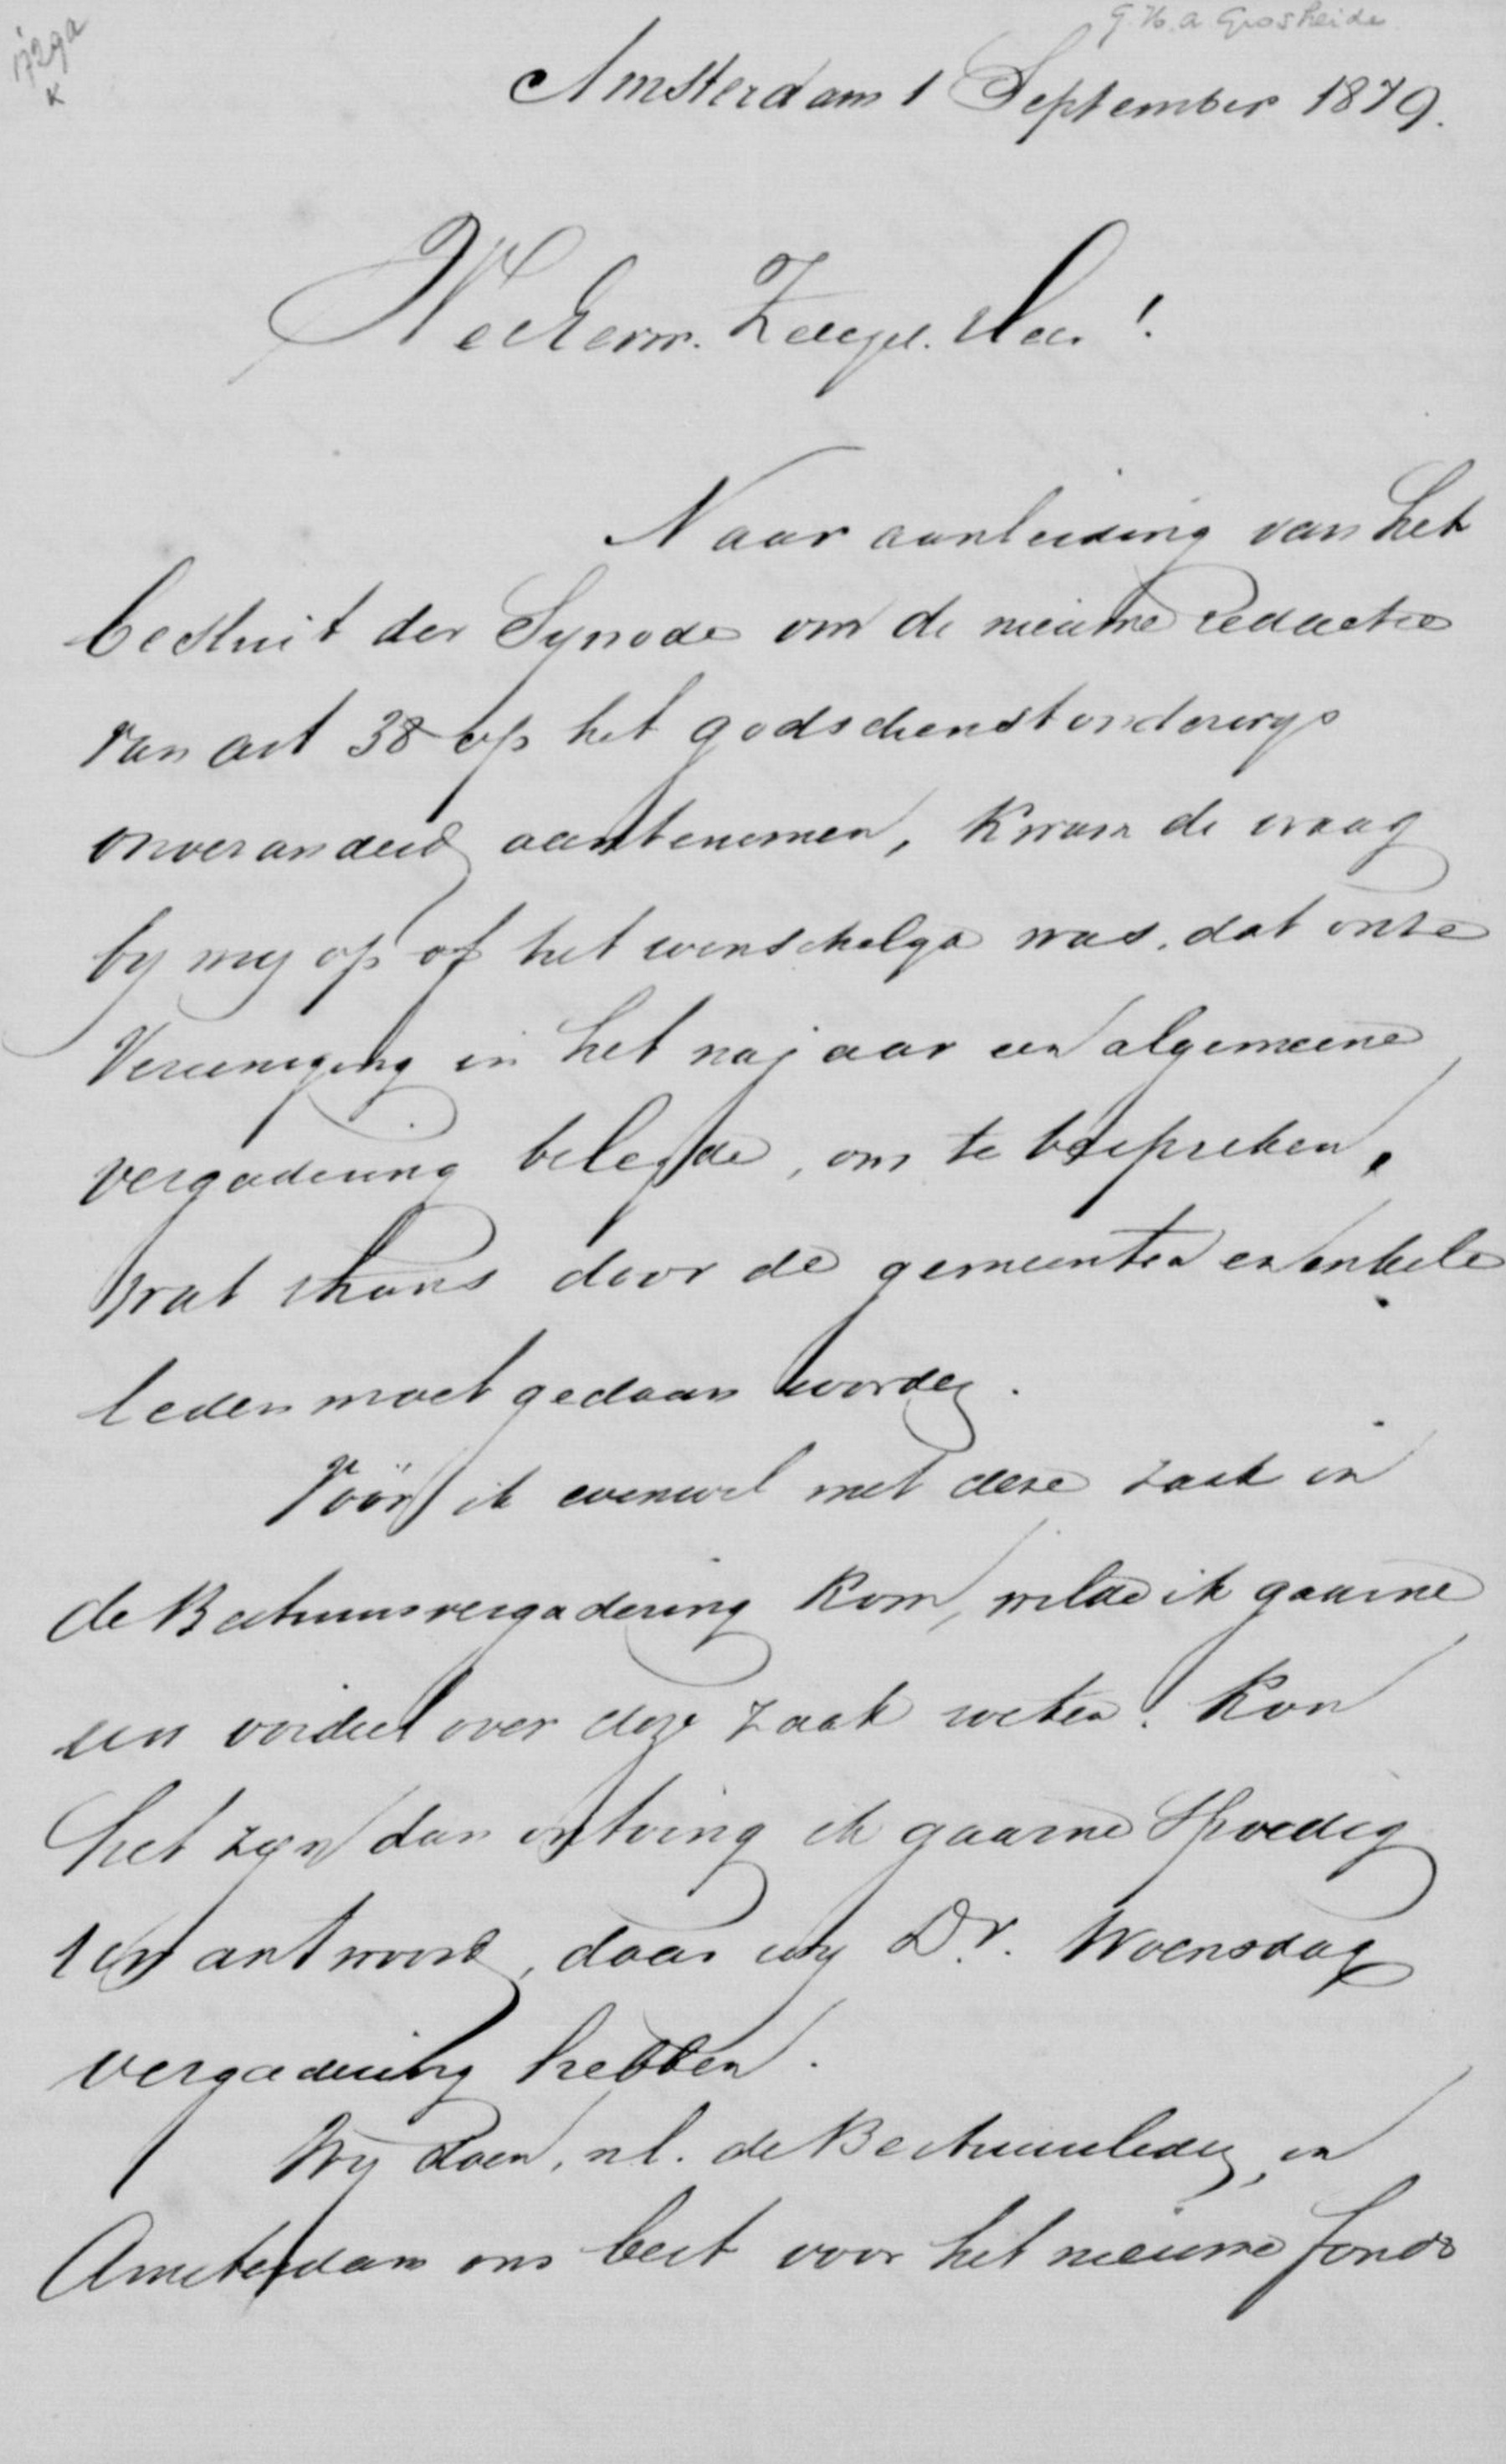 G. H. A. Grosheide
1729a
K
Amsterdam 1 September 1879.
WelEerw. Zeergel. Heer!
Naar aanleiding van het
besluit der Synode om de nieuwe redactie
van art 38 op het godsdienstonderwys
onveranderd aantenemen, kwam de vraag
by my op of het wenschelyk was, dat onze
Vereeniging in het najaar een algemeene
vergadering belegde, om te bespreken,
wat thans door de gemeenten en enkele
leden moet gedaan worden.
Vöör ik evenwel met deze zaak in
de Bestuursvergadering kom, wilde ik gaarne
uw oordeel over deze zaak weten. Kon
het zyn dan ontving ik gaarne spoedig
uw antwoord, daar wy D.V. Woensdag
vergadering hebben.
Wy doen, nl. de Bestuursleden, in
Amsterdam ons best voor het nieuwe fonds